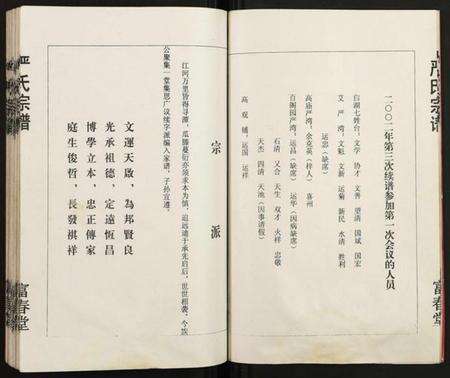 严氏宗谱
富春堂
二〇〇二年第三次续谱参加第一次会议的人员
白湖七甲台，文学 协才 文善 望清 国斌 国宏
艾严湾，文魁 文新 运菊 新民 水清 胜利
运忠（缺席）
高庙严湾，余克英（梓人） 喜州
百阁园严湾，运昌（缺席） 运华（因病缺席）
石清 又合 天生 双才 火祥 忠敬
天杰 四清 天池（因事请假）
高观铺，运国 运祥
宗派
江河万里皆得寻源，瓜瓞蔓衍亦须求本为慎，追远追于承先启后，世世相袭，今族
公聚集一堂集思广议续字派编入家谱，子孙宜遵。
文運天啟，為邦賢良
光承祖德，定遠恆昌
博學立本，忠正傳家
庭生俊哲，長發祺祥
严氏宗谱
富春堂